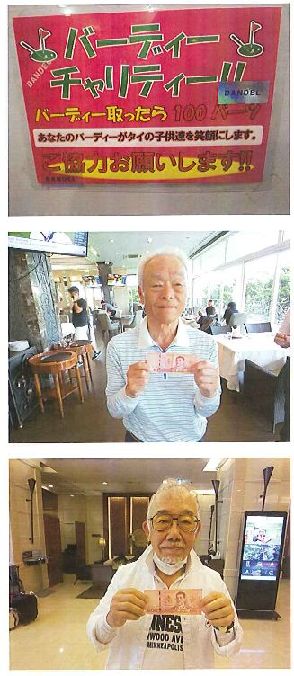 BANDEL
バーディー
チャリティー!!
BANDEL
バーディー取ったら 100 バーツ
あなたのバーディーがタイの子供達を笑顔にします。
ご協力お願いします!!
BANDEL
NNES
YWOOD AVE
MINNEAPOLIS